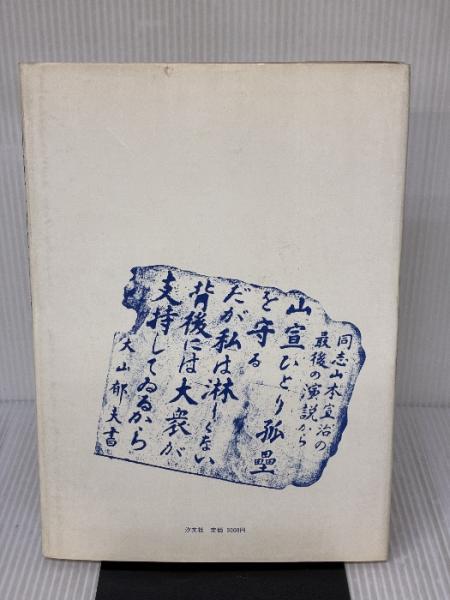 同志山本宣治の
最後の演説から
山宣ひとり孤壘
を守る
だが私は淋しくない
背後には大衆が
支持してゐるから
大山郁夫書
汐文社 定価 3000円